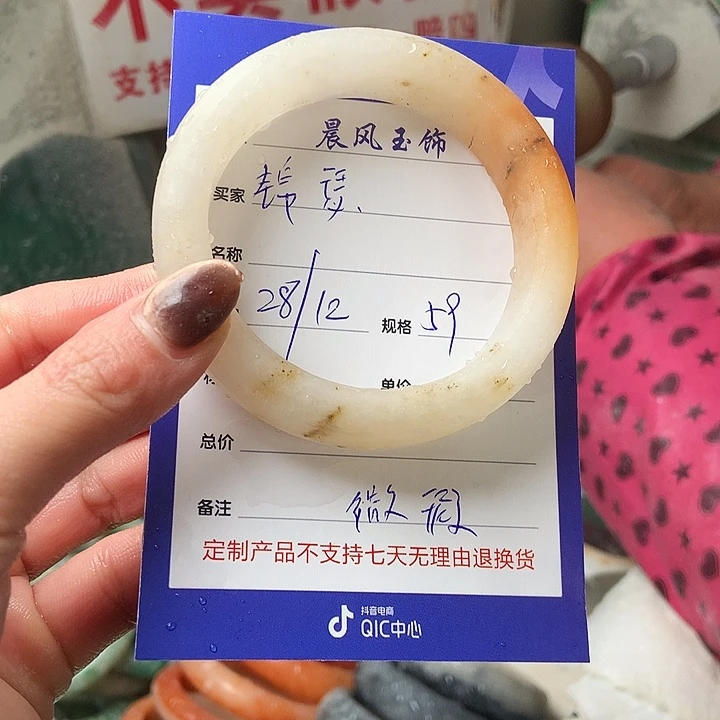 支持
晨风玉饰
买家
名称
28/12 规格 59
单价
总价
备注 微瑕
定制产品不支持七天无理由退换货
抖音电商
QIC中心